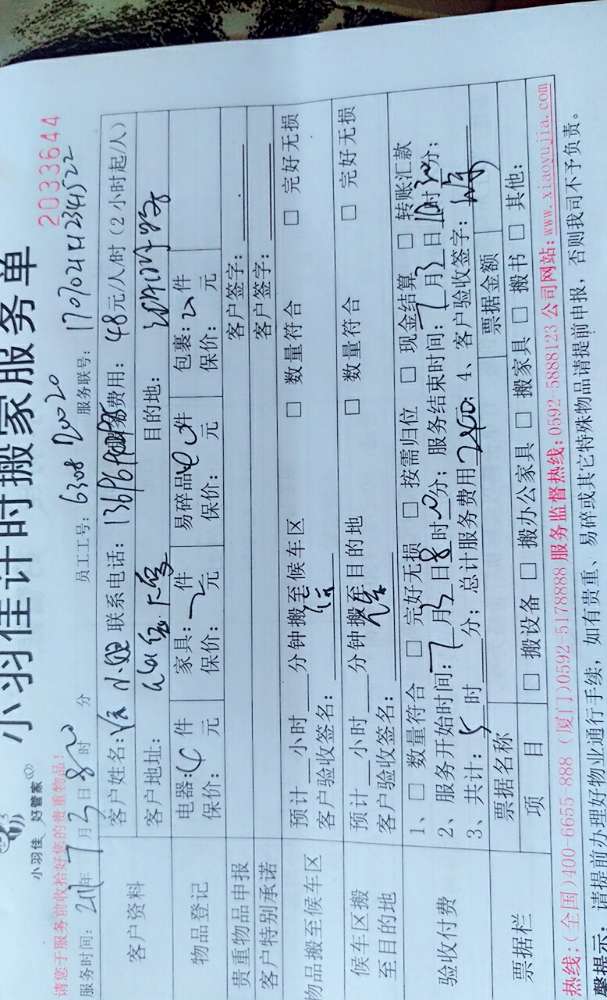 小羽佳 好管家
小羽佳计时搬家服务单
2033644
请您于服务前收拾好您的贵重物品!
服务时间: 年7月3日8时 分 员工工号: 6308 服务联号: 1707021121234522
客户资料
客户姓名: 小姐 联系电话: 费用: 48元/人/时 (2小时起/人)
客户地址: 目的地:
物品登记
电器: 件 家具: 件 易碎品 件 包裹: 件
保价: 元 保价: 元 保价: 元 保价: 元
贵重物品申报 客户签字:
客户特别承诺 客户签字:
物品搬至候车区
预计 小时 分钟搬至候车区 □ 数量符合 □ 完好无损
客户验收签名:
候车区搬至目的地
预计 小时 分钟搬至目的地 □ 数量符合 □ 完好无损
客户验收签名:
验收付费
1、□ 数量符合 □ 完好无损 □ 按需归位 □ 现金结算 □ 转账汇款
2、服务开始时间: 7月3日8时 分; 服务结束时间: 7月3日 时30分;
3、共计: 5时 分; 总计服务费用 4、客户验收签字:
票据栏
票据名称 票据金额
项 目 □ 搬设备 □ 搬办公家具 □ 搬家具 □ 搬书 □ 其他:
热线: (全国)400-6655-888 (厦门)0592-5178888 服务监督热线: 0592 5888123 公司网站: www.xiaoyujia.com
馨提示: 请提前办理好物业通行手续, 如有贵重、易碎或其它特殊物品请提前申报, 否则我司不予负责。